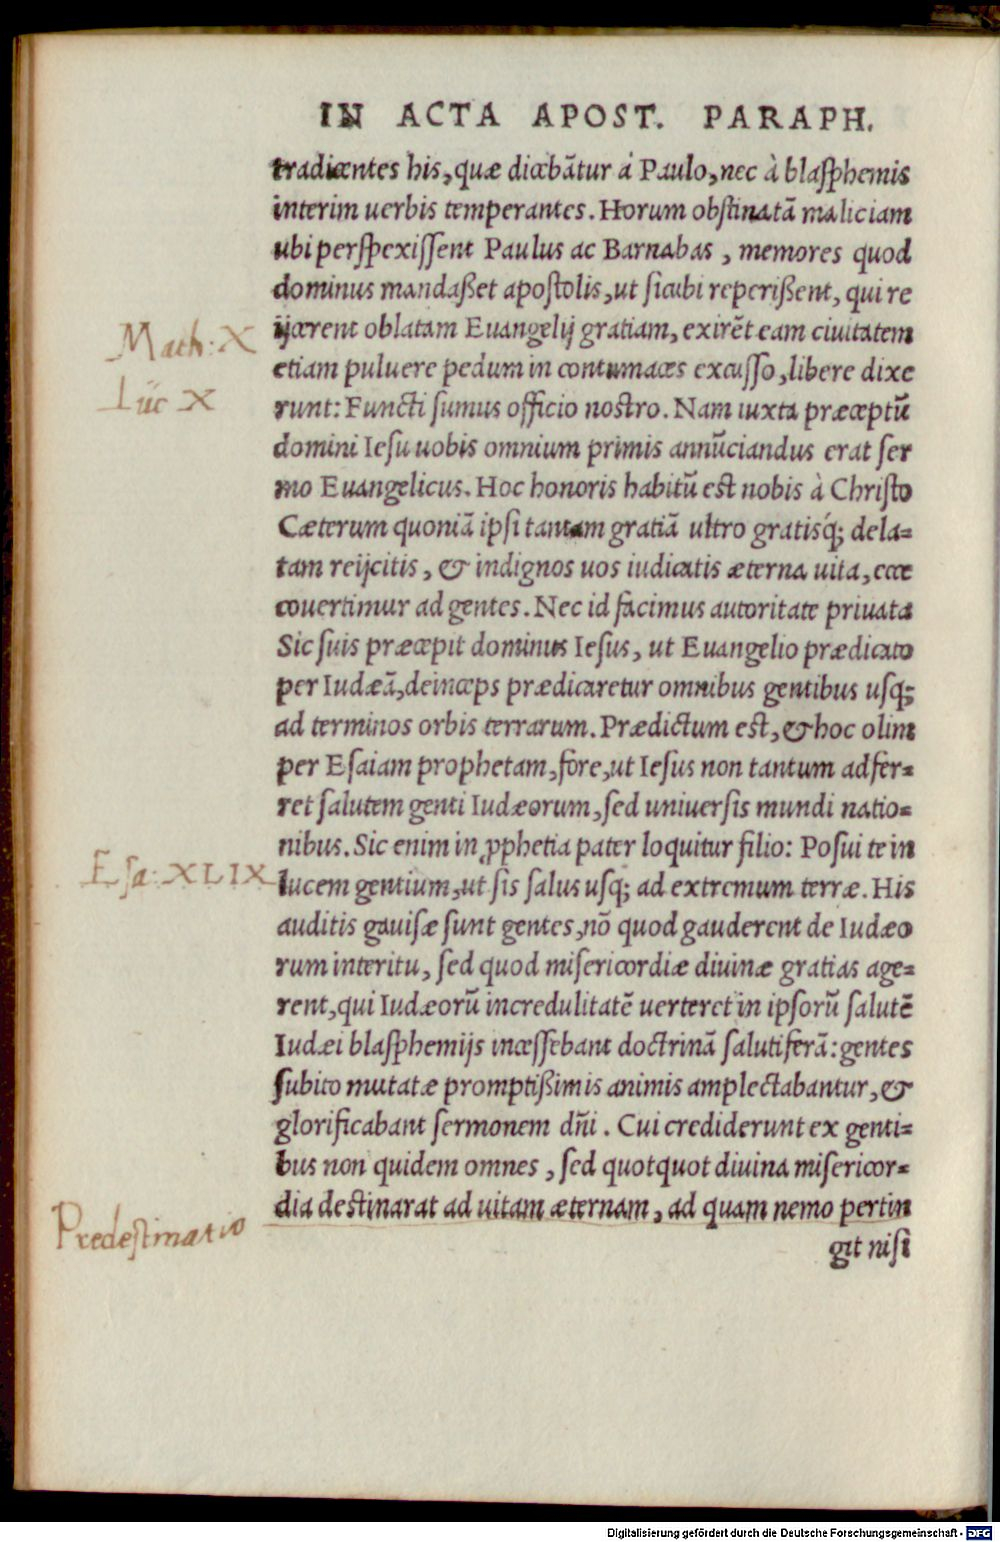 IN ACTA APOST. PARAPH.
tradicentes his, quæ dicebãtur á Paulo, nec à blaſphemis
interim uerbis temperantes. Horum obſtinatã maliciam
ubi perſpexiſſent Paulus ac Barnabas, memores quod
dominus mandaßet apoſtolis, ut ſicubi reperißent, qui re
Math: X
ijcerent oblatam Euangelij gratiam, exirẽt eam ciuitatem
etiam puluere pedum in contumaces excuſſo, libere dixe
Luc X
runt: Functi ſumus officio noſtro. Nam iuxta præceptũ
domini Ieſu uobis omnium primis annũciandus erat ſer
mo Euangelicus. Hoc honoris habitũ est nobis à Chriſto
Cæterum quoniã ipſi tantam gratiã ultro gratisq́; dela=
tam reijcitis, & indignos uos iudicatis æterna uita, ecce
couertimur ad gentes. Nec id facimus autoritate priuata
Sic ſuis præcepit dominus Ieſus, ut Euangelio prædicato
per Iudæã, deinceps prædicaretur omnibus gentibus uſq;
ad terminos orbis terrarum. Prædictum est, & hoc olim
per Eſaiam prophetam, fore, ut Ieſus non tantum adfer=
ret ſalutem genti Iudæorum, ſed uniuerſis mundi natio=
nibus. Sic enim in ꝓphetia pater loquitur filio: Poſui te in
Eſa: XLIX
lucem gentium, ut ſis ſalus uſq; ad extremum terræ. His
auditis gauiſæ ſunt gentes, nõ quod gauderent de Iudæo
rum interitu, ſed quod miſericordiæ diuinæ gratias age=
rent, qui Iudæorũ incredulitatẽ uerteret in ipſorũ ſalutẽ
Iudæi blaſphemijs inceſſebant doctrinã ſalutiferã: gentes
ſubito mutatæ promptißimis animis amplectabantur, &
glorificabant ſermonem dñi. Cui crediderunt ex genti=
bus non quidem omnes, ſed quotquot diuina miſericor=
dia deſtinarat ad uitam æternam, ad quam nemo pertin
Predeſtinatio
git niſi
Digitalisierung gefördert durch die Deutsche Forschungsgemeinschaft - DFG